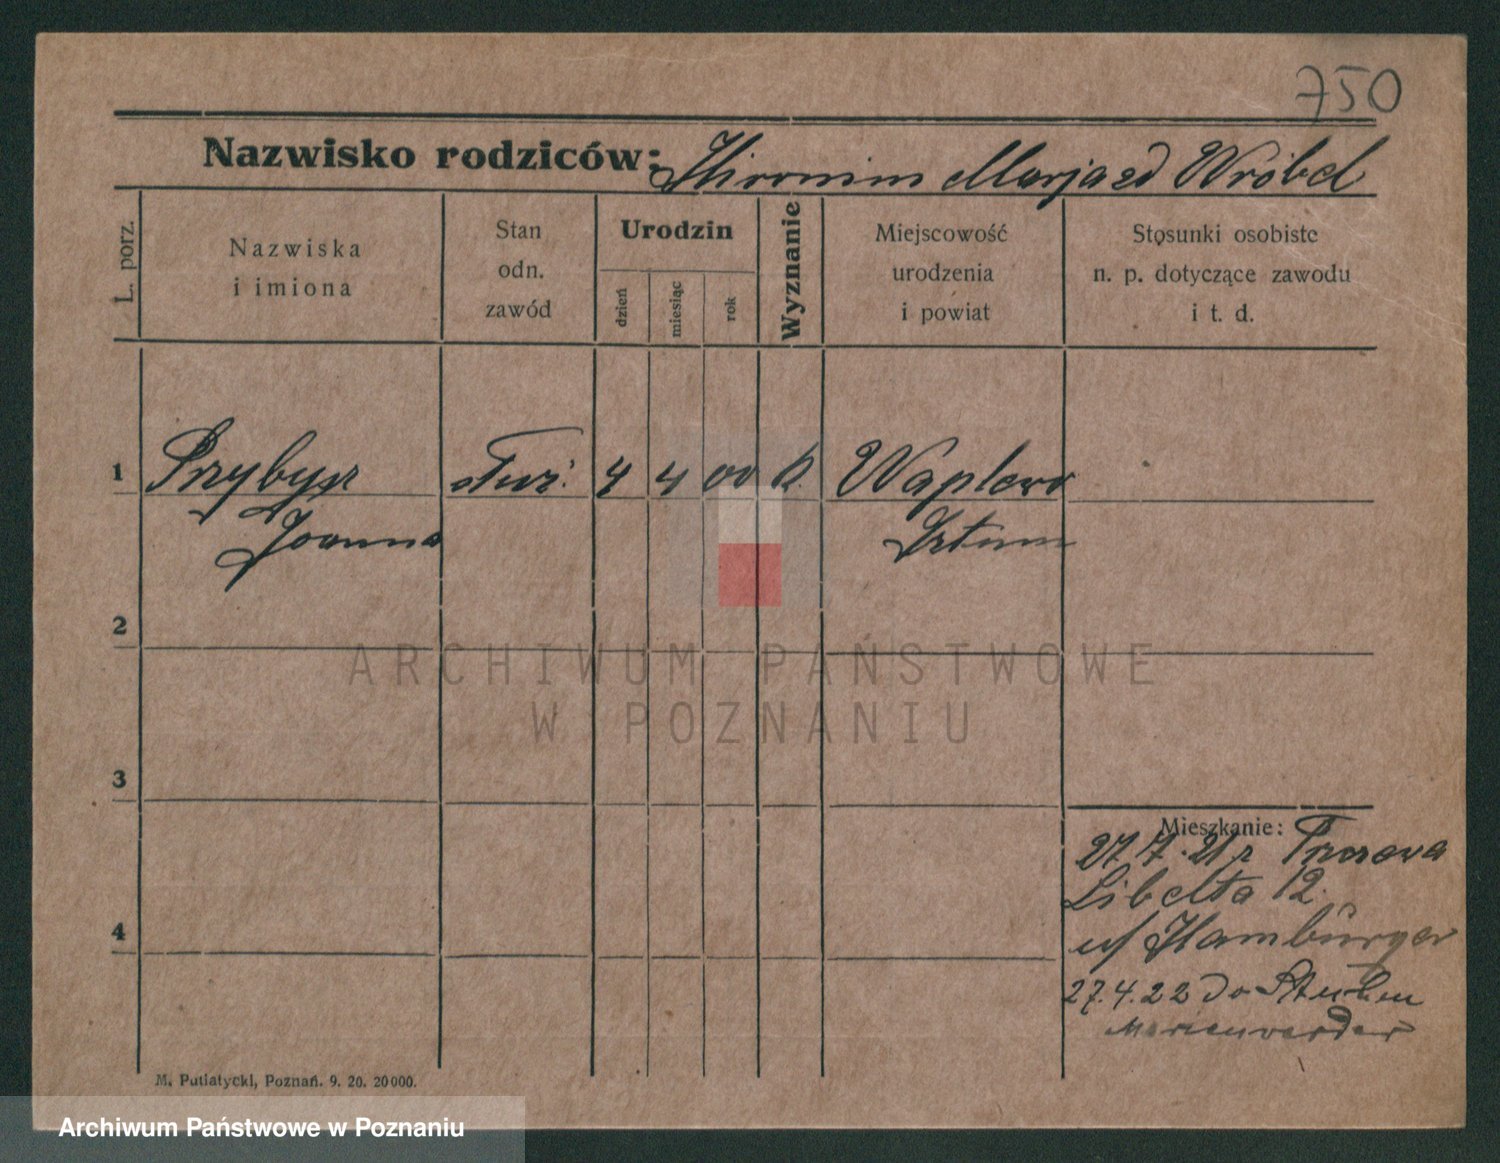 750
Nazwisko rodziców: Hieronim Marja zd Wróbel
L. porz.
Nazwiska
i imiona
Stan
odn.
zawód
Urodzin
dzień
miesiąc
rok
Wyznanie
Miejscowość
urodzenia
i powiat
Stosunki osobiste
n. p. dotyczące zawodu
i t. d.
1 Przybysz służ. 4 4 00 k. Waplewo
Joanna Sztum
2
ARCHIWUM PAŃSTWOWE
W POZNANIU
3
Mieszkanie:
27 7. 21 z
Libelta 12.
u/ Hamburger
4
27.4.22 do Stuhm
Marienwerder
M. Putiatycki, Poznań. 9. 20. 20000.
Archiwum Państwowe w Poznaniu